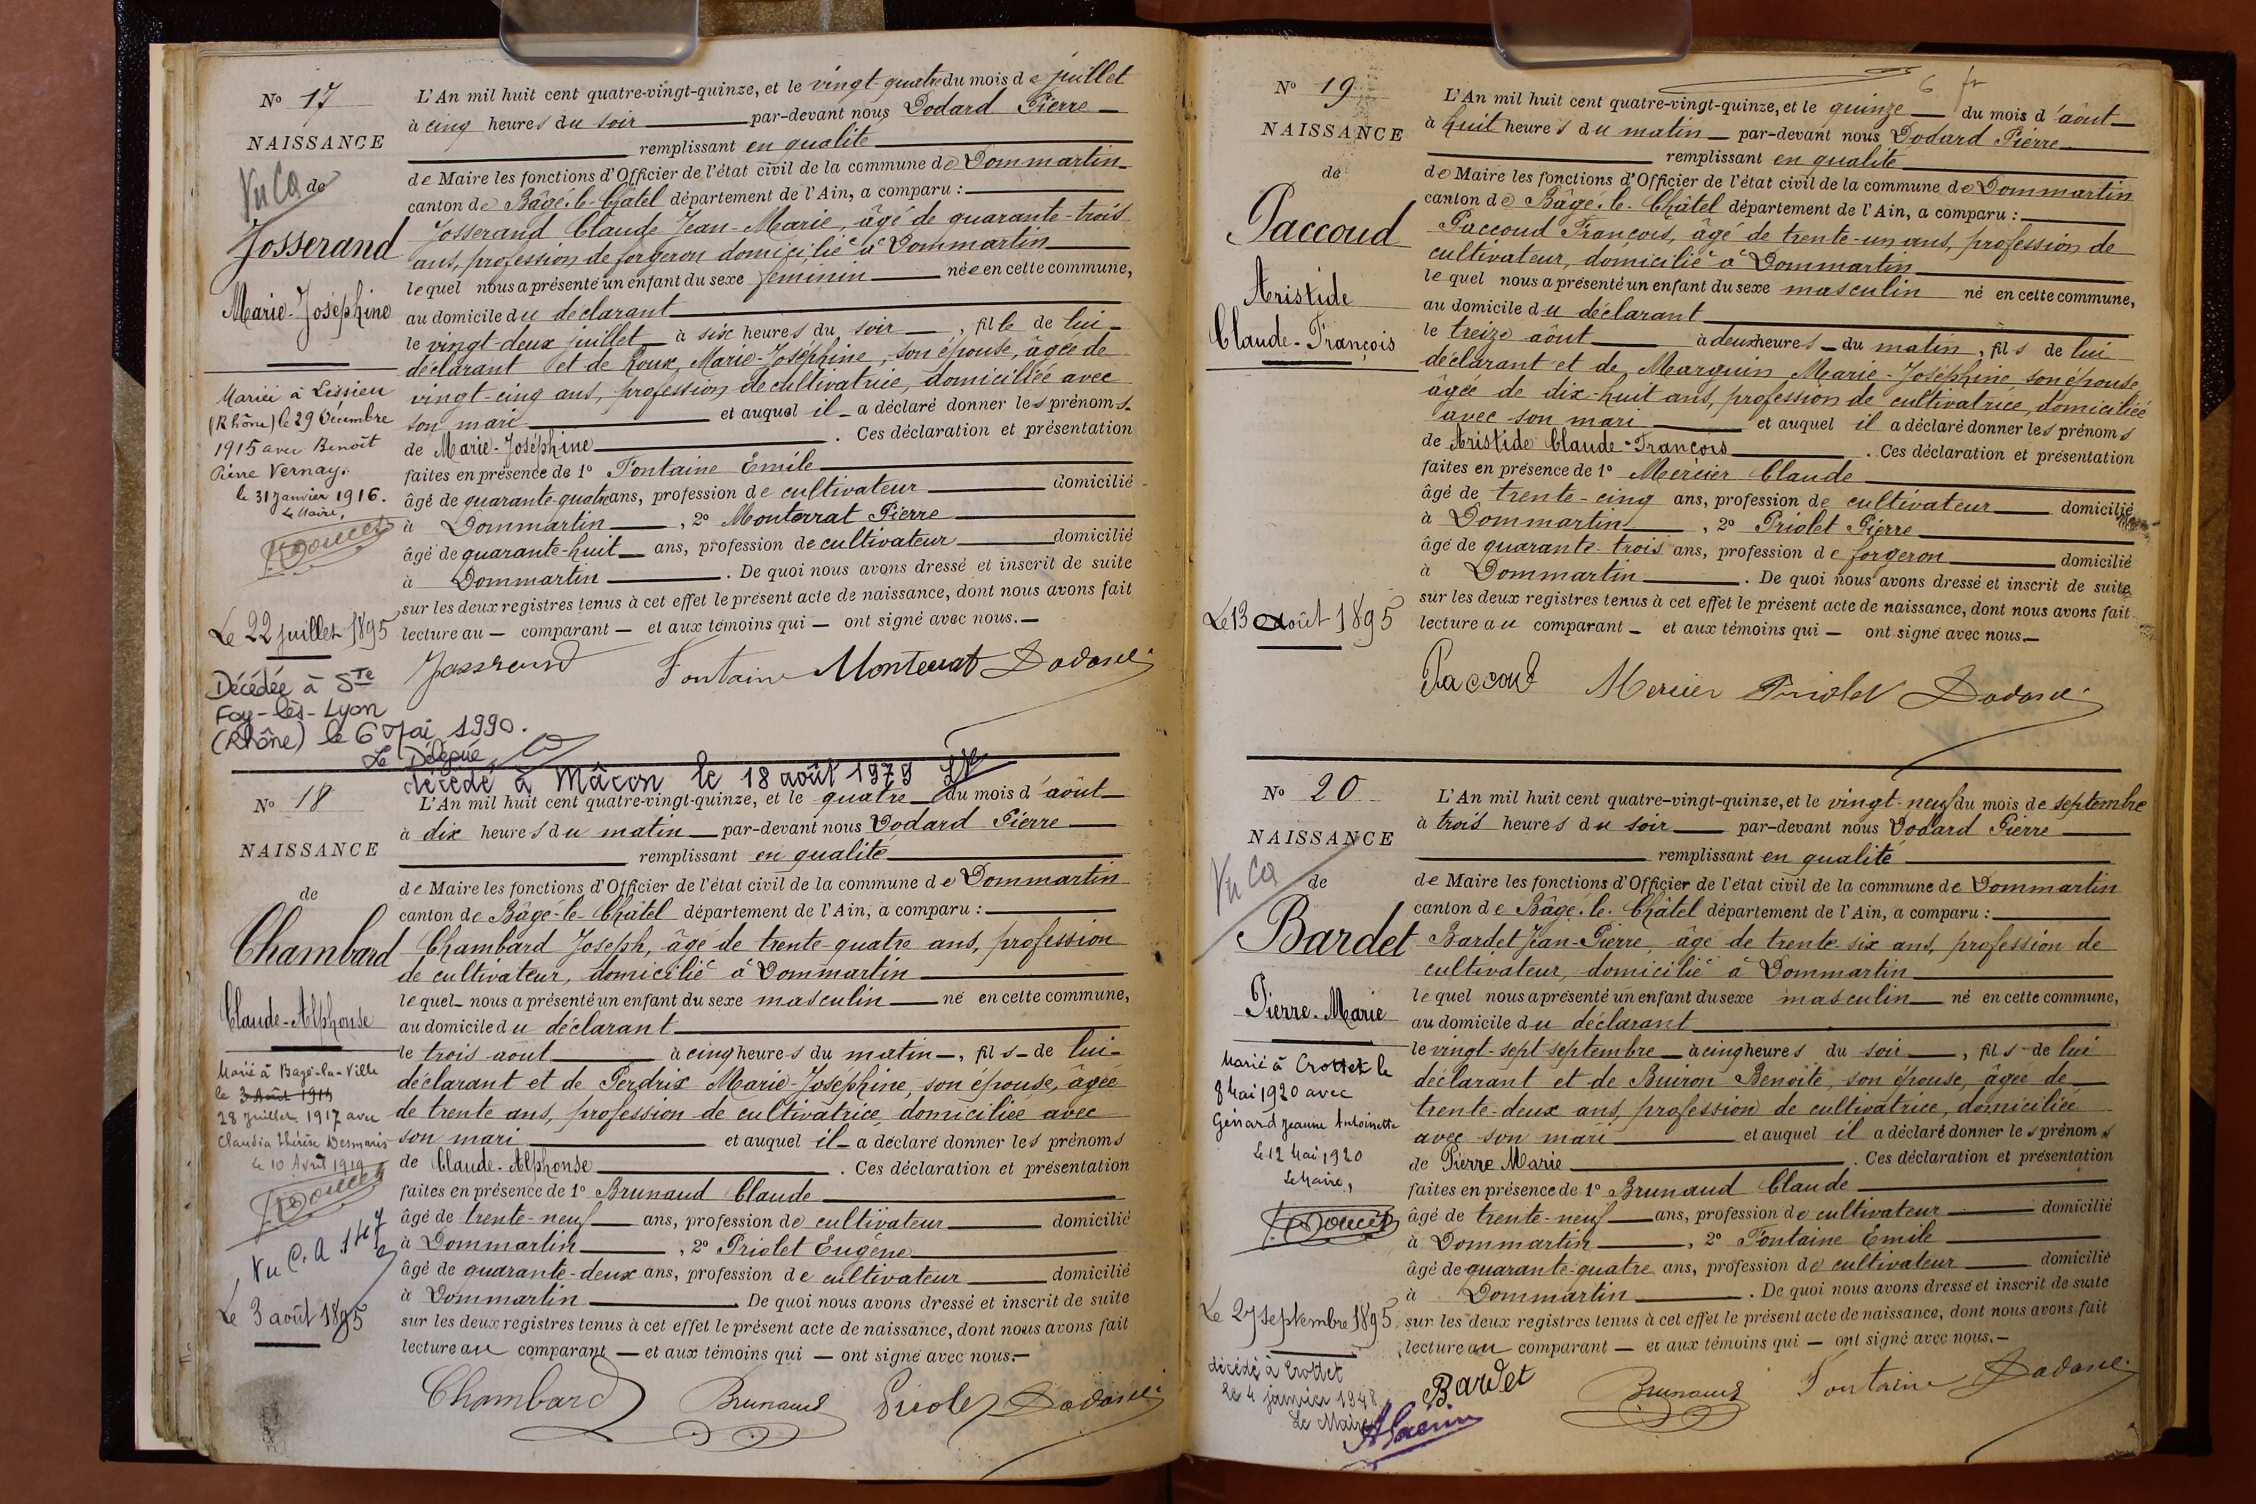 N° 17
NAISSANCE
Vu CA de
Josserand
Marie-Joséphine
Mariée à Lissieu
(Rhône) le 29 Décembre
1915 avec Benoît
Pierre Vernay.
le 31 Janvier 1916.
Le Maire,
Le 22 juillet 1895
Décédée à Ste
Foy-lès-Lyon
(Rhône) le 6 Mai 1990.
Le Délégué
L'An mil huit cent quatre-vingt-quinze, et le vingt-quatre du mois de juillet
à cinq heures du soir par-devant nous Dodard Pierre
remplissant en qualité
de Maire les fonctions d'Officier de l'état civil de la commune de Dommartin
canton de Bâgé-le-Châtel département de l'Ain, a comparu :
Josserand Claude Jean-Marie, âgé de quarante-trois
ans, profession de forgeron domicilié à Dommartin
lequel nous a présenté un enfant du sexe féminin née en cette commune,
au domicile du déclarant
le vingt-deux juillet à six heures du soir, fille de lui
déclarant et de Roux, Marie-Joséphine, son épouse, âgée de
vingt-cinq ans, profession de cultivatrice, domiciliée avec
son mari et auquel il a déclaré donner les prénoms
de Marie-Joséphine. Ces déclaration et présentation
faites en présence de 1° Fontaine Emile
âgé de quarante-quatre ans, profession de cultivateur domicilié
à Dommartin, 2° Monterrat Pierre
âgé de quarante-huit ans, profession de cultivateur domicilié
à Dommartin. De quoi nous avons dressé et inscrit de suite
sur les deux registres tenus à cet effet le présent acte de naissance, dont nous avons fait
lecture au comparant et aux témoins qui ont signé avec nous.
Josserand Fontaine Monterrat Dodard
décédé à Mâcon le 18 août 1979
N° 18
NAISSANCE
de
Chambard
Claude-Alphonse
Marié à Bagé-la-Ville
le 3 Août 1914
28 Juillet 1917 avec
Claudia Thérèse Desmaris
le 10 Avril 1919
Vu C.A 147
Le 3 août 1895
L'An mil huit cent quatre-vingt-quinze, et le quatre du mois d'août
à dix heures du matin par-devant nous Dodard Pierre
remplissant en qualité
de Maire les fonctions d'Officier de l'état civil de la commune de Dommartin
canton de Bâgé-le-Châtel département de l'Ain, a comparu :
Chambard Joseph, âgé de trente-quatre ans, profession
de cultivateur, domicilié à Dommartin
lequel nous a présenté un enfant du sexe masculin né en cette commune,
au domicile du déclarant
le trois août à cinq heures du matin, fils de lui
déclarant et de Perdrix Marie-Joséphine, son épouse, âgée
de trente ans, profession de cultivatrice, domiciliée avec
son mari et auquel il a déclaré donner les prénoms
de Claude-Alphonse. Ces déclaration et présentation
faites en présence de 1° Brunaud Claude
âgé de trente-neuf ans, profession de cultivateur domicilié
à Dommartin, 2° Priolet Eugène
âgé de quarante-deux ans, profession de cultivateur domicilié
à Dommartin. De quoi nous avons dressé et inscrit de suite
sur les deux registres tenus à cet effet le présent acte de naissance, dont nous avons fait
lecture au comparant et aux témoins qui ont signé avec nous.
Chambard Brunaud Priolet Dodard
N° 19
NAISSANCE
de
Paccoud
Aristide
Claude-François
Le 13 août 1895
L'An mil huit cent quatre-vingt-quinze, et le quinze du mois d'août
à huit heures du matin par-devant nous Dodard Pierre
remplissant en qualité
de Maire les fonctions d'Officier de l'état civil de la commune de Dommartin
canton de Bâgé-le-Châtel département de l'Ain, a comparu :
Paccoud François, âgé de trente-un ans, profession de
cultivateur, domicilié à Dommartin
lequel nous a présenté un enfant du sexe masculin né en cette commune,
au domicile du déclarant
le treize août à deux heures du matin, fils de lui
déclarant et de Marguin Marie-Joséphine, son épouse,
âgée de dix-huit ans, profession de cultivatrice, domiciliée
avec son mari et auquel il a déclaré donner les prénoms
de Aristide Claude-François. Ces déclaration et présentation
faites en présence de 1° Mercier Claude
âgé de trente-cinq ans, profession de cultivateur domicilié
à Dommartin, 2° Priolet Pierre
âgé de quarante-trois ans, profession de forgeron domicilié
à Dommartin. De quoi nous avons dressé et inscrit de suite
sur les deux registres tenus à cet effet le présent acte de naissance, dont nous avons fait
lecture au comparant et aux témoins qui ont signé avec nous.
Paccoud Mercier Priolet Dodard
N° 20
NAISSANCE
Vu CA
de
Bardet
Pierre-Marie
Marié à Crottet le
8 Mai 1920 avec
Génard Jeanne Antoinette
Le 12 Mai 1920
Le Maire,
Le 27 septembre 1895
décédé à Crottet
le 4 janvier 1948
Le Maire
L'An mil huit cent quatre-vingt-quinze, et le vingt-neuf du mois de septembre
à trois heures du soir par-devant nous Dodard Pierre
remplissant en qualité
de Maire les fonctions d'Officier de l'état civil de la commune de Dommartin
canton de Bâgé-le-Châtel département de l'Ain, a comparu :
Bardet Jean-Pierre, âgé de trente-six ans, profession de
cultivateur, domicilié à Dommartin
lequel nous a présenté un enfant du sexe masculin né en cette commune,
au domicile du déclarant
le vingt-sept septembre à cinq heures du soir, fils de lui
déclarant et de Buiron Benoîte, son épouse, âgée de
trente-deux ans, profession de cultivatrice, domiciliée
avec son mari et auquel il a déclaré donner les prénoms
de Pierre Marie. Ces déclaration et présentation
faites en présence de 1° Brunaud Claude
âgé de trente-neuf ans, profession de cultivateur domicilié
à Dommartin, 2° Fontaine Emile
âgé de quarante-quatre ans, profession de cultivateur domicilié
à Dommartin. De quoi nous avons dressé et inscrit de suite
sur les deux registres tenus à cet effet le présent acte de naissance, dont nous avons fait
lecture au comparant et aux témoins qui ont signé avec nous.
Bardet Brunaud Fontaine Dodard